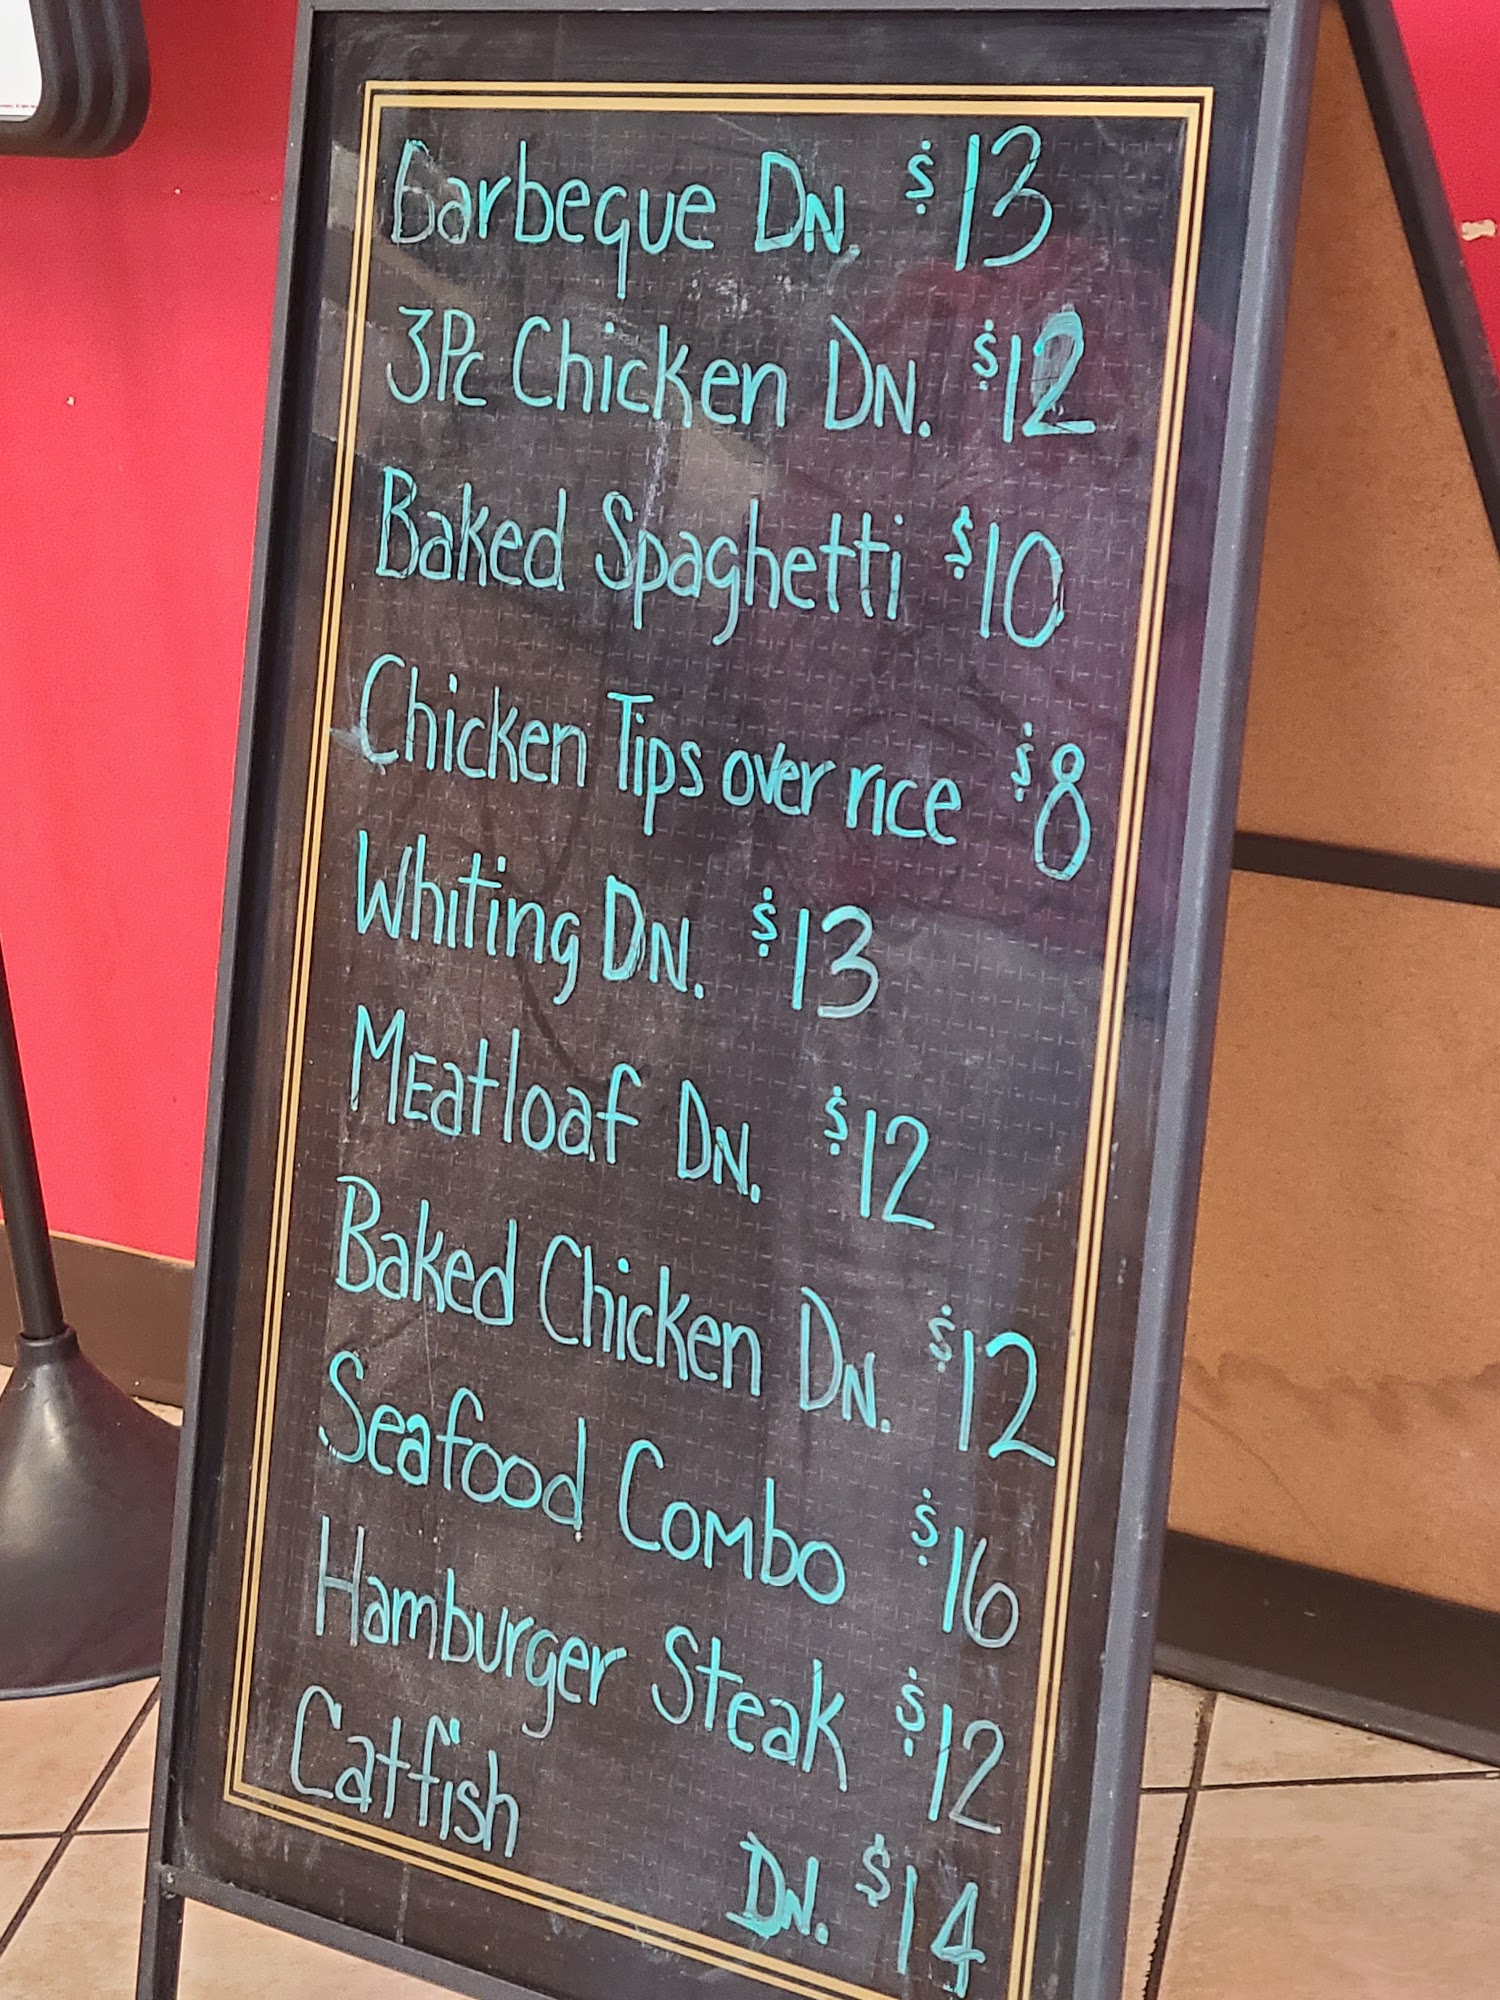 Barbeque DN. $13
3Pc Chicken DN. $12
Baked Spaghetti $10
Chicken Tips over rice $8
Whiting DN. $13
MEatloaf DN. $12
Baked Chicken DN. $12
Seafood Combo $16
Hamburger Steak $12
Catfish DN. $14